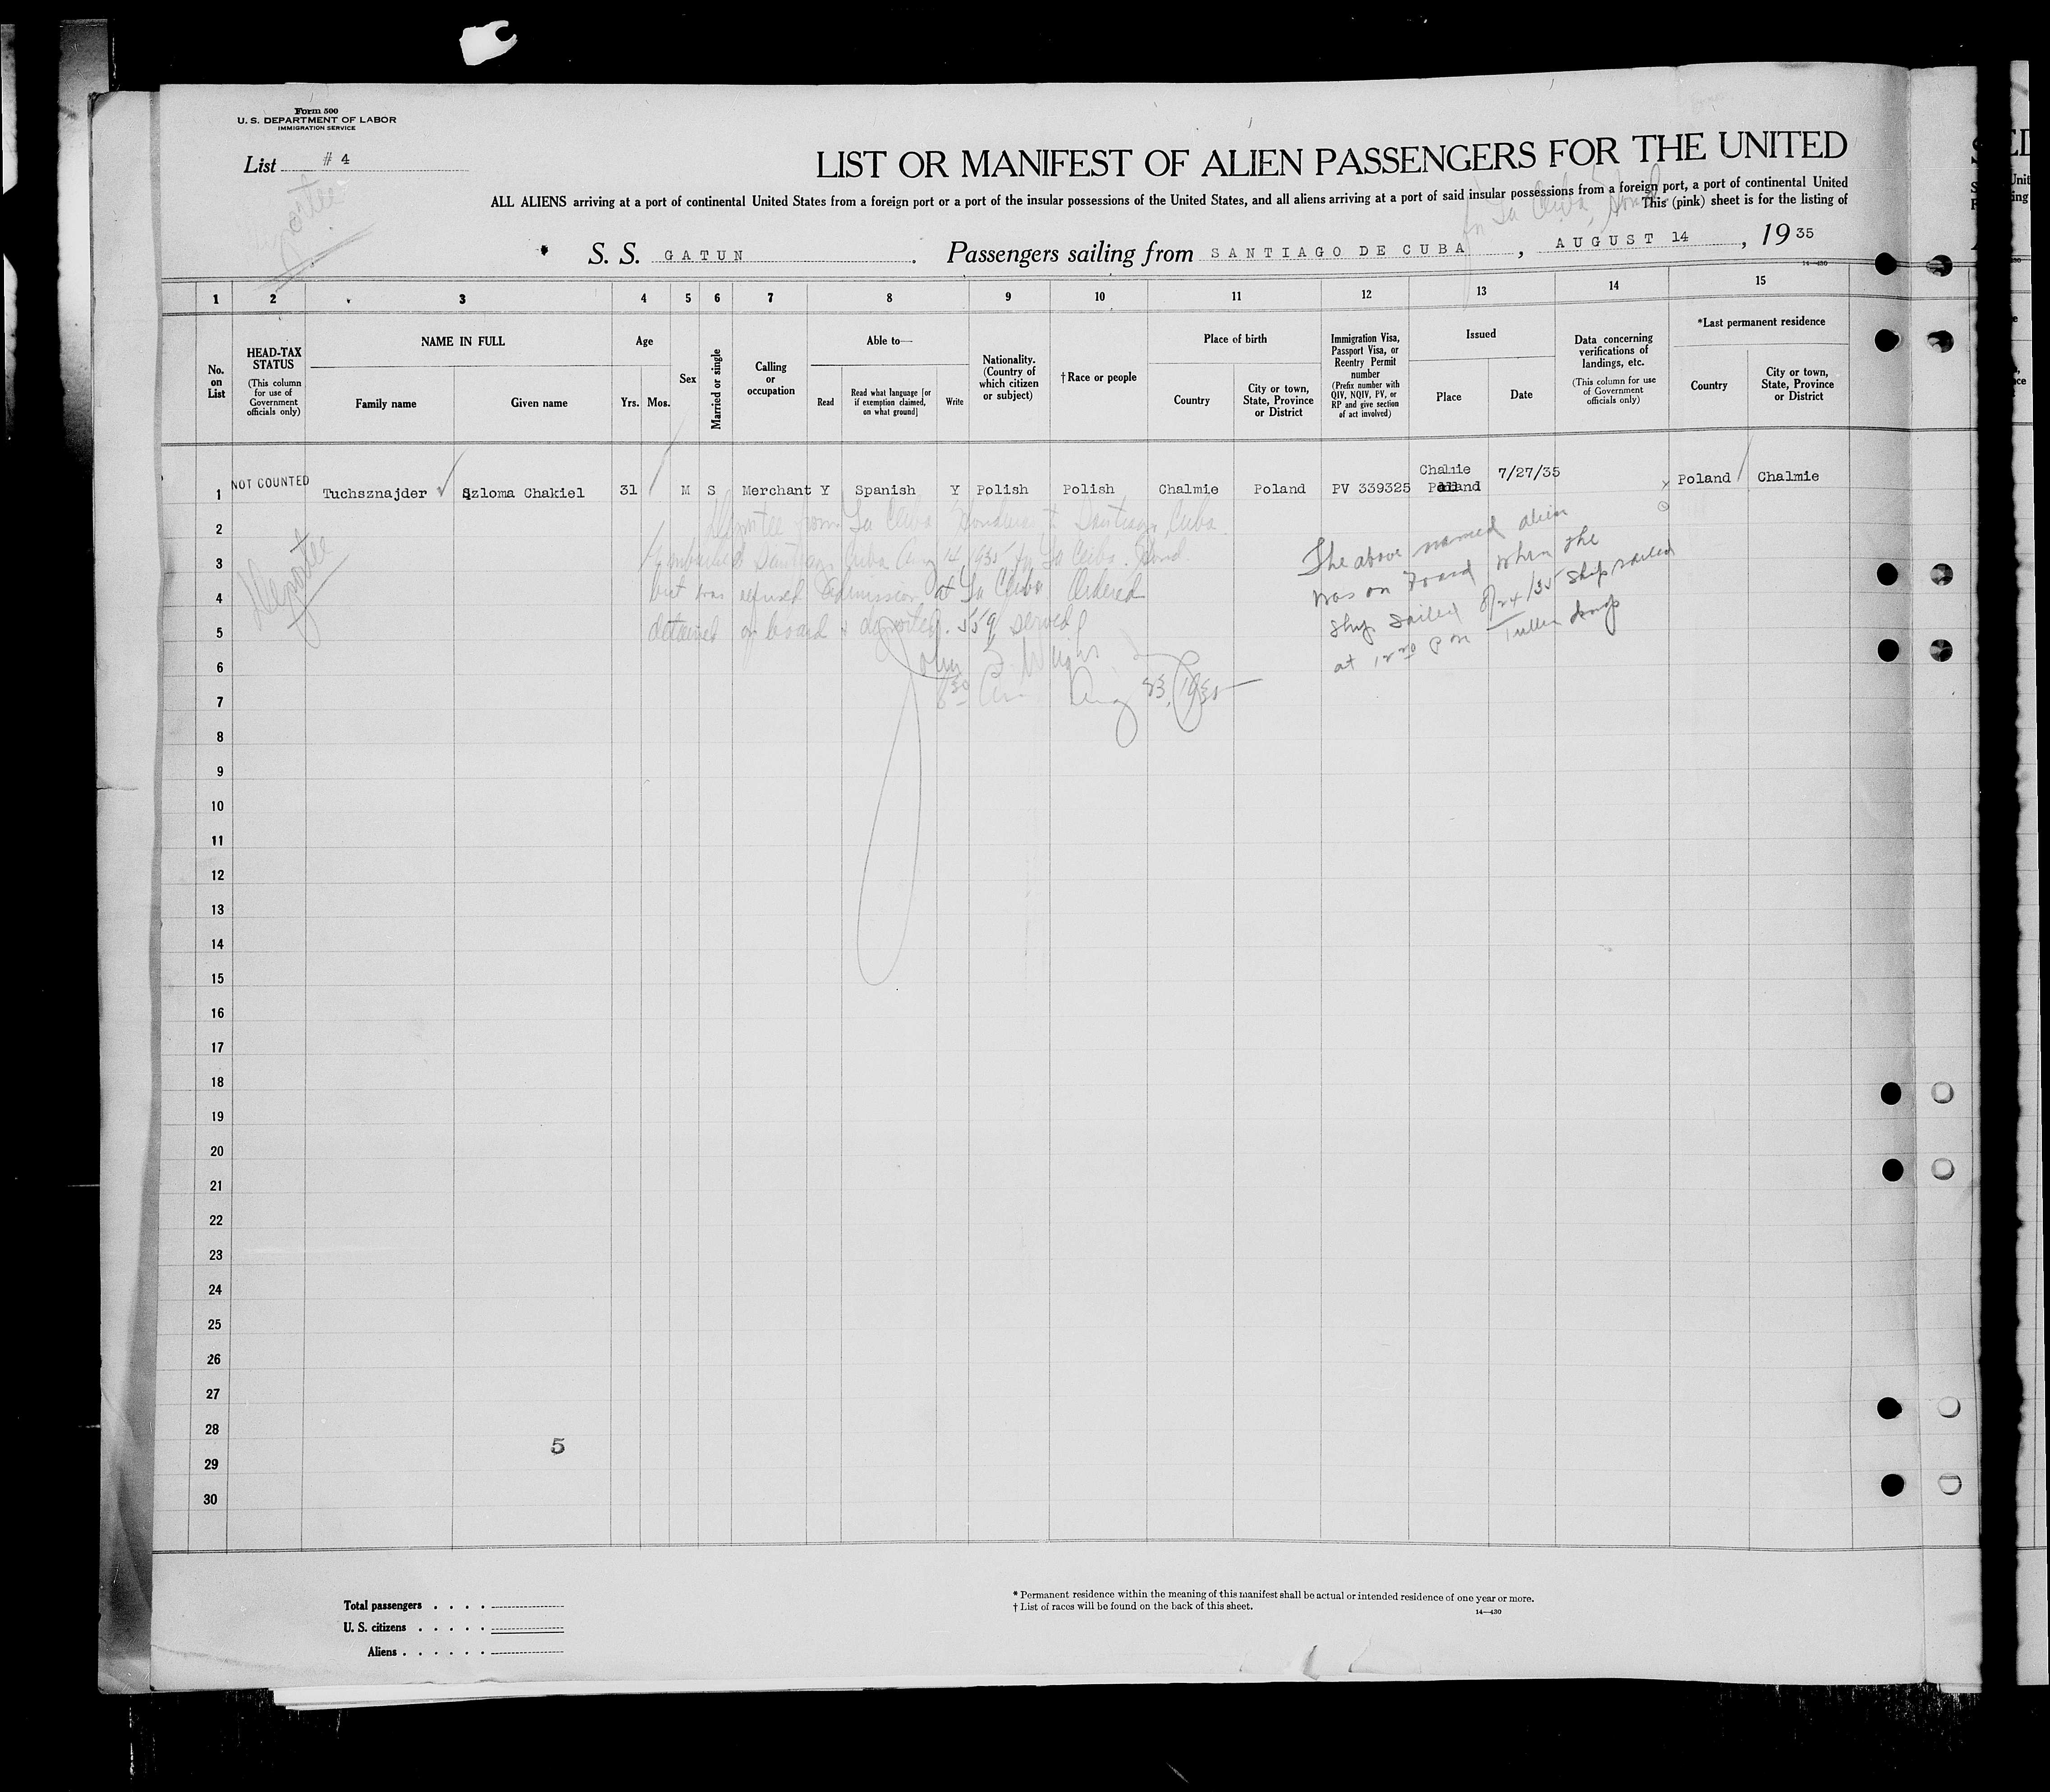 Form 500
U. S. DEPARTMENT OF LABOR
IMMIGRATION SERVICE
List # 4
Deportee
LIST OR MANIFEST OF ALIEN PASSENGERS FOR THE UNITED
ALL ALIENS arriving at a port of continental United States from a foreign port or a port of the insular possessions of the United States, and all aliens arriving at a port of said insular possessions from a foreign port, a port of continental United
This (pink) sheet is for the listing of
for La Ceiba, Hond.
S. S. GATUN . Passengers sailing from SANTIAGO DE CUBA , AUGUST 14 , 19 35
14—430
1 2 3 4 5 6 7 8 9 10 11 12 13 14 15
No. on List
HEAD-TAX STATUS
(This column for use of Government officials only)
NAME IN FULL
Family name
Given name
Age
Yrs.
Mos.
Sex
Married or single
Calling or occupation
Able to—
Read
Read what language [or if exemption claimed, on what ground]
Write
Nationality. (Country of which citizen or subject)
† Race or people
Place of birth
Country
City or town, State, Province or District
Immigration Visa, Passport Visa, or Reentry Permit number
(Prefix number with QIV, NQIV, PV, or RP and give section of act involved)
Issued
Place
Date
Data concerning verifications of landings, etc.
(This column for use of Government officials only)
*Last permanent residence
Country
City or town, State, Province or District
1 NOT COUNTED Tuchsznajder Szloma Chakiel 31 M S Merchant Y Spanish Y Polish Polish Chalmie Poland PV 339325 Chalmie Poland 7/27/35 Poland Chalmie
Deportee from La Ceiba Honduras to Santiago, Cuba
Embarked Santiago Cuba Aug 14, 1935 for La Ceiba. Hond.
but was refused admission at La Ceiba. Ordered
detained on board & deported. 559 served
John F. Wright
8 30 Am Aug 23, 1935
Deportee
The above named alien
was on board when the
ship sailed 8/24/35 Ship sailed
at 12 20 P M
2
3
4
5
6
7
8
9
10
11
12
13
14
15
16
17
18
19
20
21
22
23
24
25
26
27
28
29
30
5
Total passengers . . . .
U. S. citizens . . . . .
Aliens . . . . . .
* Permanent residence within the meaning of this manifest shall be actual or intended residence of one year or more.
† List of races will be found on the back of this sheet.
14—430